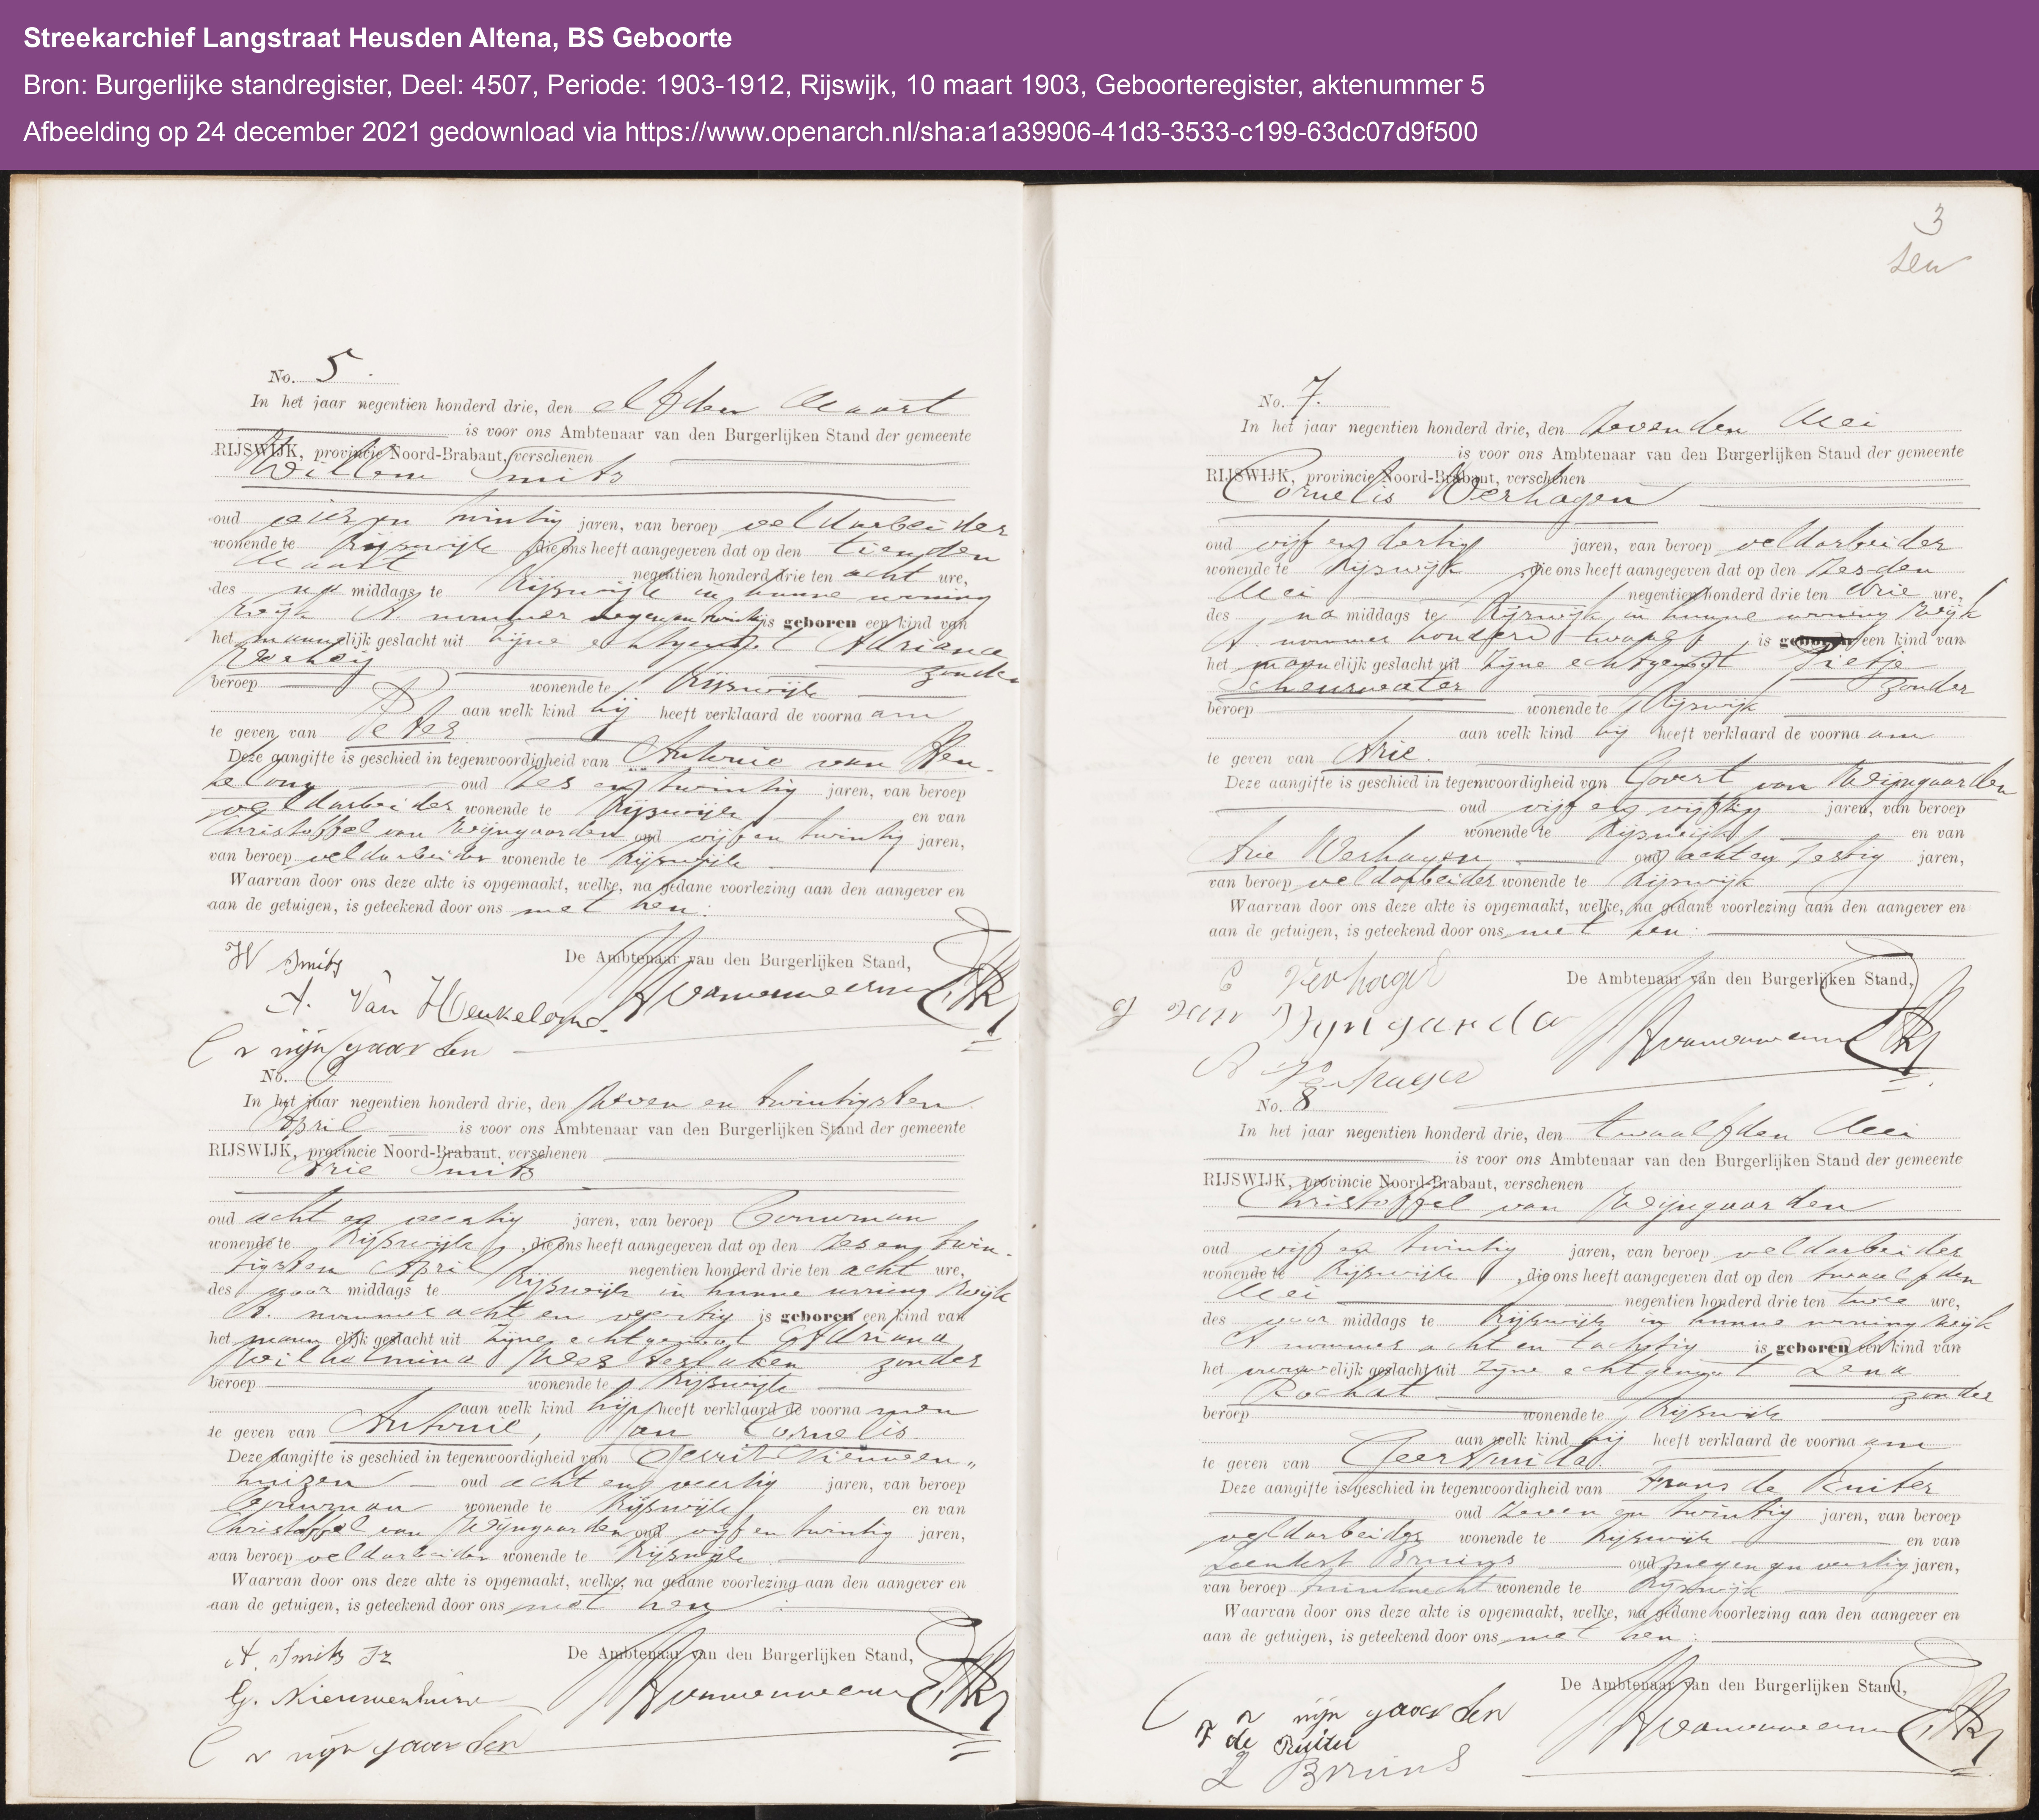 Streekarchief Langstraat Heusden Altena, BS Geboorte
Bron: Burgerlijke standregister, Deel: 4507, Periode: 1903-1912, Rijswijk, 10 maart 1903, Geboorteregister, aktenummer 5
Afbeelding op 24 december 2021 gedownload via https://www.openarch.nl/sha:a1a39906-41d3-3533-c199-63dc07d9f500
No. 5.
In het jaar negentien honderd drie, den elfden Maart
is voor ons Ambtenaar van den Burgerlijken Stand der gemeente
RIJSWIJK, provincie Noord-Brabant, verschenen
Willem Smits
oud vier en twintig jaren, van beroep veldarbeider
wonende te Rijswijk die ons heeft aangegeven dat op den tienden
Maart negentien honderd drie ten acht ure,
des na middags te Rijswijk in hunne woning
Wijk A. nommer negenentwintig is geboren een kind van
het mannelijk geslacht uit zijne echtgenoot Adriana
Verheij zonder
beroep wonende te Rijswijk
aan welk kind hij heeft verklaard de voornaam
te geven van Peter
Deze aangifte is geschied in tegenwoordigheid van Antonie van Heu-
kelom oud zes en twintig jaren, van beroep
veldarbeider wonende te Rijswijk en van
Christoffel van Wijngaarden oud vijf en twintig jaren,
van beroep veldarbeider wonende te Rijswijk
Waarvan door ons deze akte is opgemaakt, welke, na gedane voorlezing aan den aangever en
aan de getuigen, is geteekend door ons met hen:
W Smits
De Ambtenaar van den Burgerlijken Stand,
A. Van Heukelom.
C v wijngaarden
No. 6
In het jaar negentien honderd drie, den zeven en twintigsten
April is voor ons Ambtenaar van den Burgerlijken Stand der gemeente
RIJSWIJK, provincie Noord-Brabant, verschenen
Arie Smits
oud acht en veertig jaren, van beroep Bouwman
wonende te Rijswijk, die ons heeft aangegeven dat op den zes en twin-
tigsten April negentien honderd drie ten acht ure,
des voor middags te Rijswijk in hunne woning Wijk
A. nommer acht en veertig is geboren een kind van
het mannelijk geslacht uit zijne echtgenoot Adriana
Wilhelmina zonder
beroep wonende te Rijswijk
aan welk kind hij heeft verklaard de voornamen
te geven van Antonie, Jan Cornelis.
Deze aangifte is geschied in tegenwoordigheid van Gerrit Nieuwen„
huizen oud acht en veertig jaren, van beroep
Bouwman wonende te Rijswijk en van
Christoffel van Wijngaarden oud vijf en twintig jaren,
van beroep veldarbeider wonende te Rijswijk
Waarvan door ons deze akte is opgemaakt, welke, na gedane voorlezing aan den aangever en
aan de getuigen, is geteekend door ons met hen:
A. Smits Jz
De Ambtenaar van den Burgerlijken Stand,
G. Nieuwenhuize
C v wijngaarden
3
No. 7.
In het jaar negentien honderd drie, den Zevenden Mei
is voor ons Ambtenaar van den Burgerlijken Stand der gemeente
RIJSWIJK, provincie Noord-Brabant, verschenen
Cornelis Verhagen
oud vijf en dertig jaren, van beroep veldarbeider
wonende te Rijswijk, die ons heeft aangegeven dat op den Zesden
Mei negentien honderd drie ten drie ure,
des na middags te Rijswijk in hunne woning Wijk
A. nommer honderd twaalf, is geboren een kind van
het mannelijk geslacht uit zijne echtgenoot Pietje
Scheurwater zonder
beroep wonende te Rijswijk
aan welk kind hij heeft verklaard de voornaam
te geven van Arie.
Deze aangifte is geschied in tegenwoordigheid van Govert van Wijngaarden
oud vijf en vijftig jaren, van beroep
wonende te Rijswijk en van
Arie Verhagen oud acht en zestig jaren,
van beroep veldarbeider wonende te Rijswijk
Waarvan door ons deze akte is opgemaakt, welke, na gedane voorlezing aan den aangever en
aan de getuigen, is geteekend door ons met hen:
C Verhagen
De Ambtenaar van den Burgerlijken Stand,
G van
No. 8
In het jaar negentien honderd drie, den twaalfden Mei
is voor ons Ambtenaar van den Burgerlijken Stand der gemeente
RIJSWIJK, provincie Noord-Brabant, verschenen
Christoffel van Wijngaarden
oud vijf en twintig jaren, van beroep veldarbeider
wonende te Rijswijk, die ons heeft aangegeven dat op den twaalfden
Mei negentien honderd drie ten twee ure,
des voor middags te Rijswijk in hunne woning Wijk
A nommer acht en tachtig is geboren een kind van
het vrouwelijk geslacht uit zijne echtgenoot Lena
Rochat zonder
beroep wonende te Rijswijk
aan welk kind hij heeft verklaard de voornaam
te geven van Geertruida.
Deze aangifte is geschied in tegenwoordigheid van Frans de Ruiter
oud zeven en twintig jaren, van beroep
veldarbeider wonende te Rijswijk en van
Leendert Bruins oud negen en veertig jaren,
van beroep wonende te Rijswijk
Waarvan door ons deze akte is opgemaakt, welke, na gedane voorlezing aan den aangever en
aan de getuigen, is geteekend door ons met hen:
De Ambtenaar van den Burgerlijken Stand,
C v wijngaarden
F de Ruiter
L Bruins